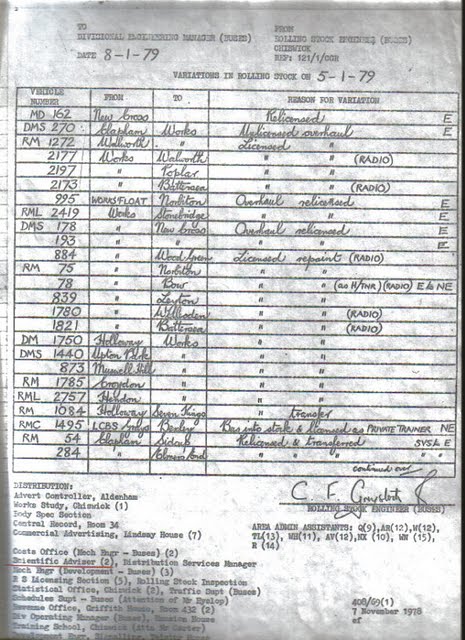 TO FROM
DIVISIONAL ENGINEERING MANAGER (BUSES) ROLLING STOCK ENGINEER (BUSES)
CHISWICK
DATE 8-1-79 REF: 121/1/CGR
VARIATIONS IN ROLLING STOCK ON 5-1-79
VEHICLE NUMBER FROM TO REASON FOR VARIATION
MD 162 New Cross Relicensed E
DMS 270 Clapham Works Unlicensed overhaul E
RM 1272 Walworth " Licensed " E
2177 Works Walworth " " (RADIO)
2197 " Poplar " "
2173 " Battersea " " (RADIO)
995 WORKS FLOAT Norbiton Overhaul relicensed E
RML 2419 Works Stonebridge " " E
DMS 178 " New Cross Overhaul relicensed E
193 " " " " E
884 " Wood Green Licensed repaint (RADIO)
RM 75 " Norbiton " "
78 " Bow " " (as H/TNR) (RADIO) E to NE
839 " Leyton " "
1780 " Willesden " " (RADIO)
1821 " Battersea " " (RADIO)
DM 1750 Holloway Works " "
DMS 1440 Upton Park " " "
873 Muswell Hill " " "
RM 1785 Croydon " " "
RML 2757 Hendon " " "
RM 1084 Holloway Seven Kings " transfer
RMC 1495 LCBS Bexley into stock & licensed as PRIVATE TRAINER NE
RM 54 Clapham Sidcup Relicensed & transferred E
284 " Elmers End " " " "
continued over
DISTRIBUTION:
Advert Controller, Aldenham
Works Study, Chiswick (1)
Body Spec Section
Central Record, Room 34
Commercial Advertising, Lindsay House (7)
C. F.
ROLLING STOCK ENGINEER (BUSES)
AREA ADMIN ASSISTANTS: Q(9),AR(12),W(12),
TL(13), WH(11), AV(12), HX (10), WN (15),
R (14)
Costs Office (Mech Engr - Buses) (2)
Scientific Adviser (2), Distribution Services Manager
Mech Engr (Development - Buses) (3)
R S Licensing Section (5), Rolling Stock Inspection
Statistical Office, Chiswick (2), Traffic Supt (Buses)
Schedules Supt - Buses (Attention of Mr Hyslop)
Revenue Office, Griffith House, Room 432 (2)
Div Operating Manager (Buses), Mansion House
Training School, Chiswick
408/69(1)
7 November 1978